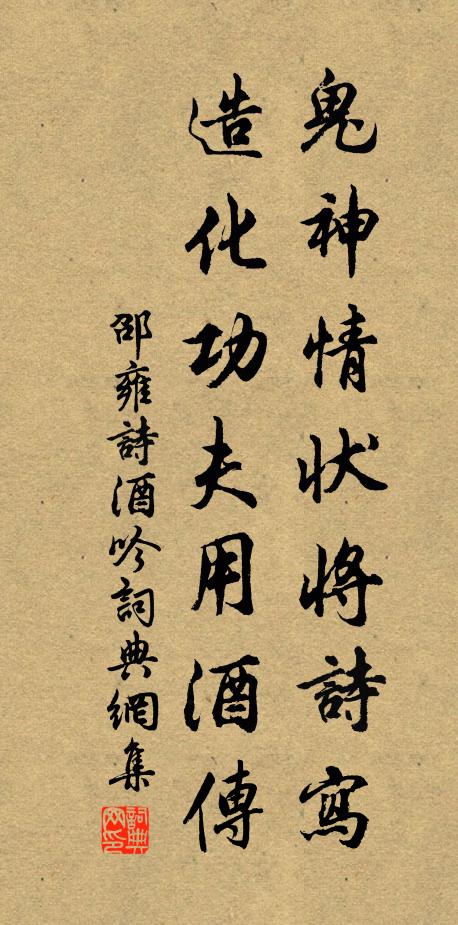 鬼神情状將詩寫
造化功夫用酒傳
邵雍詩酒吟詞典網集
詞典网印